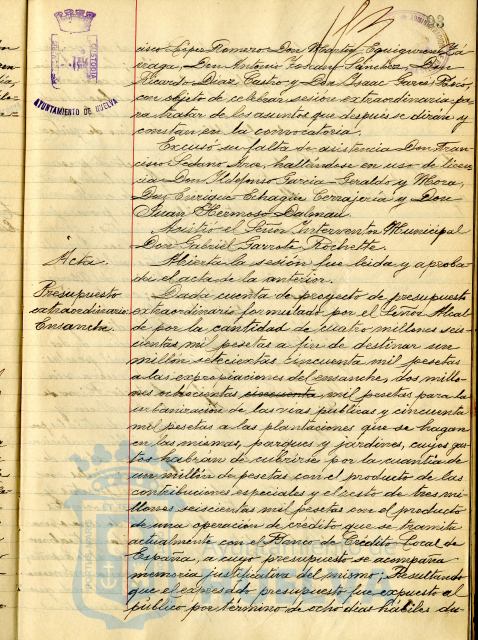 93
AYUNTAMIENTO DE HUELVA
cisco López Romero Don Martín
Don Antonio Sánchez, Don
Ricardo Díaz Castro y Don Isaac García
con objeto de celebrar sesión extraordinaria pa-
ra tratar de los asuntos que después se dirán y
constan en la convocatoria.
Excusó su falta de asistencia Don Fran-
cisco Sedano Arce, hallándose en uso de licen-
cia Don Ildefonso García Geraldo y Mora,
Don Enrique Echague Cerrajería y Don
Juan Hermoso Dalmau
Asistió el Señor Interventor Municipal
Don Gabriel Garrote Rochette.
Acta.
Abierta la sesión fue leída y aproba-
da el acta de la anterior.
Presupuesto
extraordinario:
Ensanche.
Dada cuenta de proyecto de presupuesto
extraordinario formulado por el Señor Alcal-
de por la cantidad de cuatro millones seis-
cientas mil pesetas a fin de destinar un
millón setecientas cincuenta mil pesetas
a las expropiaciones del ensanche, dos millo-
nes ochocientas cincuenta mil pesetas para la
urbanización de las vías públicas y cincuenta
mil pesetas a las plantaciones que se hagan
en las mismas, parques y jardines, cuyos gas-
tos habrán de cubrirse por la cuantía de
un millón de pesetas con el producto de las
contribuciones especiales y el resto de tres mi-
llones seiscientas mil pesetas con el producto
de una operación de crédito que se tramita
actualmente con el Banco de Crédito Local de
España, a cuyo presupuesto se acompaña
memoria justificativa del mismo; Resultando
que el expresado presupuesto fue expuesto al
público por término de ocho días hábiles du-